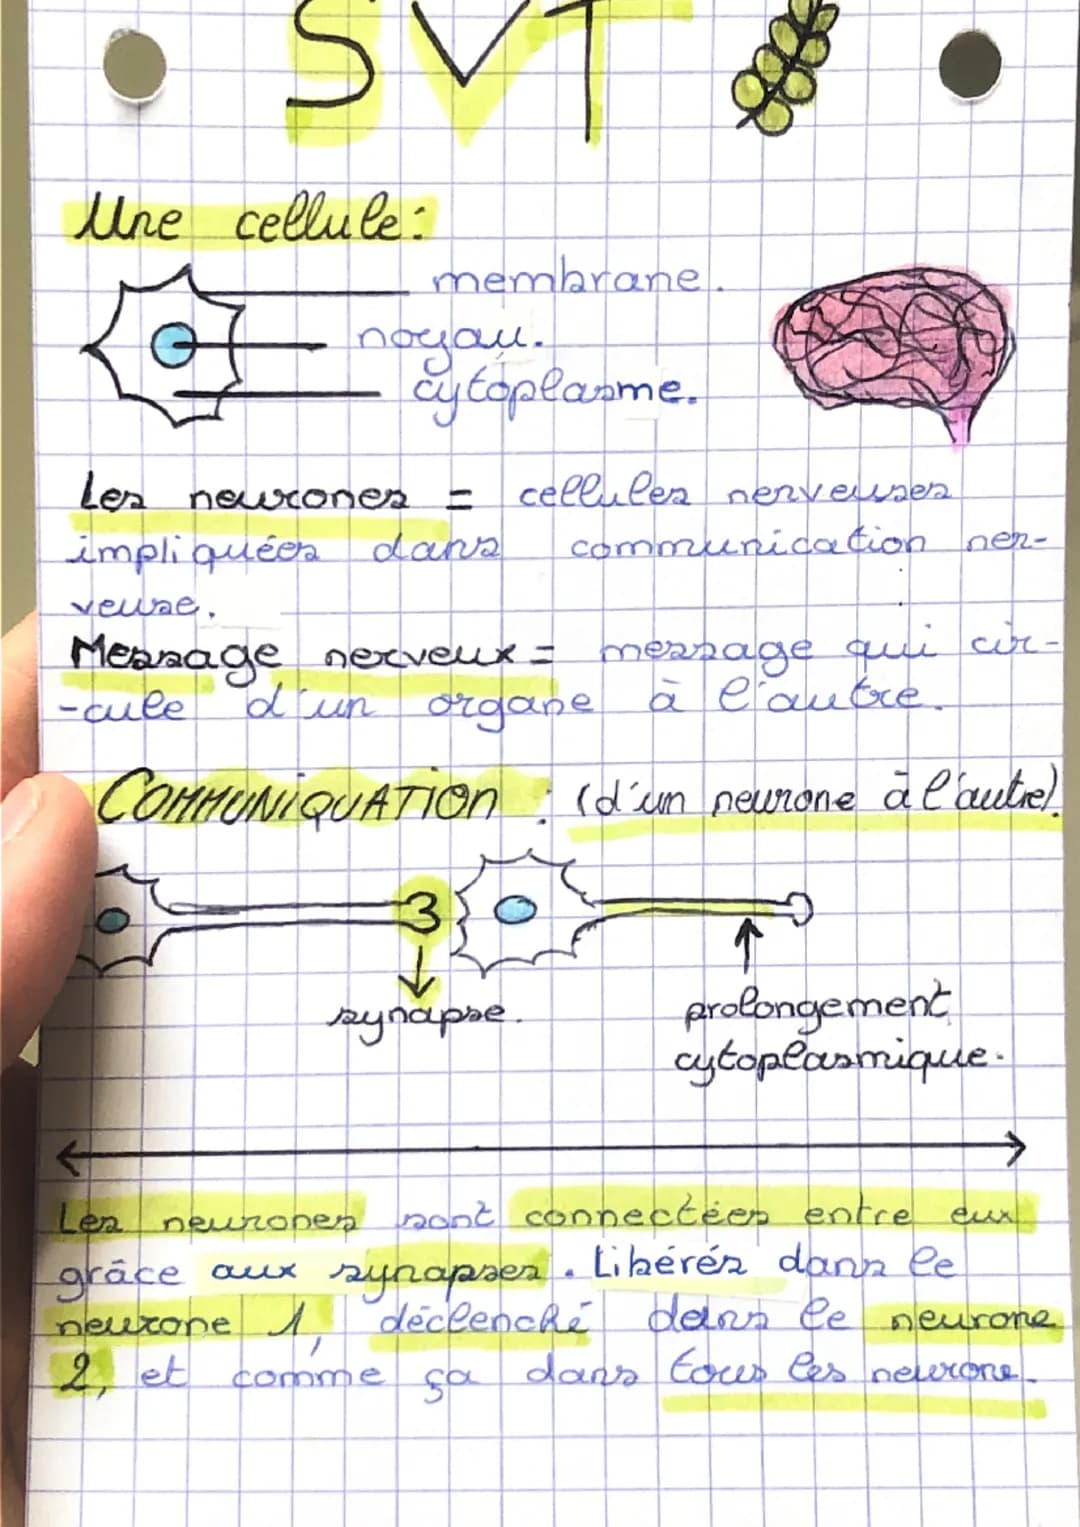 SVT
Une cellule:
membrane.
noyau.
cytoplasme.
Les neurones = cellules nerveuses
impliquées dans communication ner-
veuse.
Message nerveux = message qui cir-
-cule d'un organe à l'autre.
COMMUNIQUATION : (d'un neurone à l'autre).
synapse.
prolongement
cytoplasmique.
Les neurones sont connectées entre eux
grâce aux synapses. Libérés dans le
neurone 1, déclenché dans le neurone
2, et comme ça dans tous les neurone.